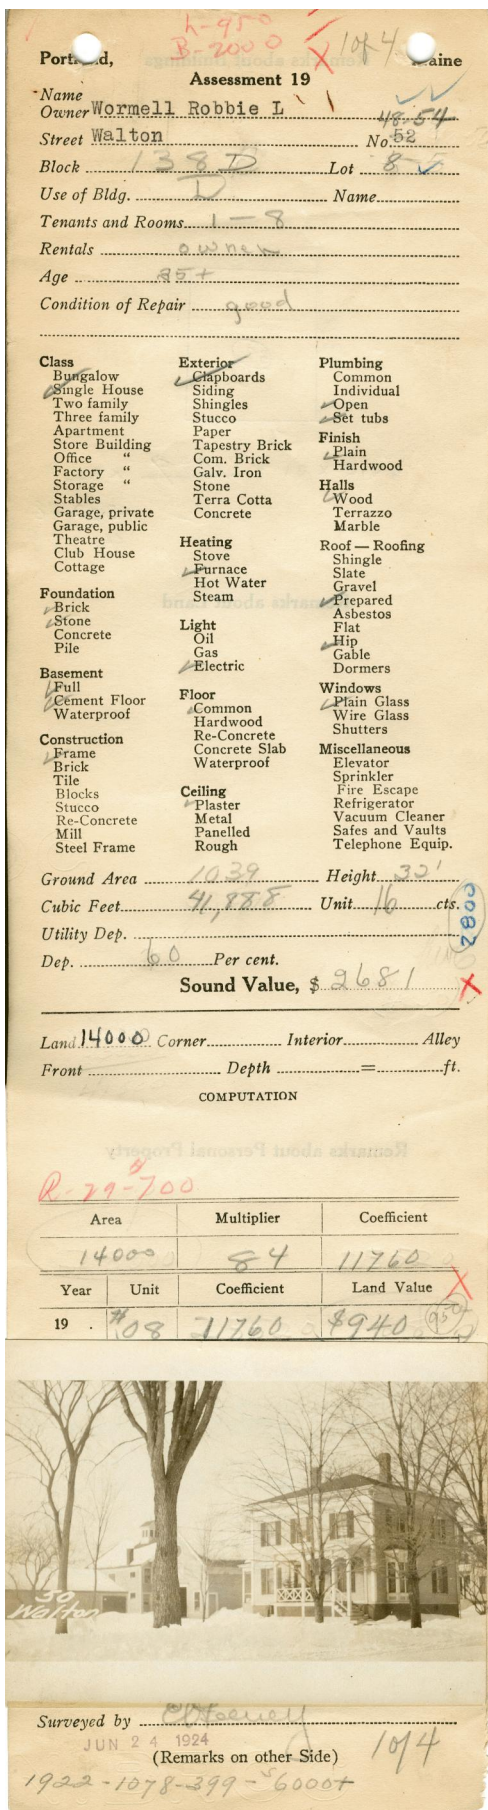 L-950
B-2000 X 1 of 4
Portland, Maine
Assessment 19
Name
Owner Wormell Robbie L
48-54
Street Walton No. 52
Block 138 D Lot 8
Use of Bldg. D Name
Tenants and Rooms 1 - 8
Rentals owner
Age 35+
Condition of Repair good
Class
Bungalow
Single House
Two family
Three family
Apartment
Store Building
Office "
Factory "
Storage "
Stables
Garage, private
Garage, public
Theatre
Club House
Cottage
Foundation
Brick
Stone
Concrete
Pile
Basement
Full
Cement Floor
Waterproof
Construction
Frame
Brick
Tile
Blocks
Stucco
Re-Concrete
Mill
Steel Frame
Exterior
Clapboards
Siding
Shingles
Stucco
Paper
Tapestry Brick
Com. Brick
Galv. Iron
Stone
Terra Cotta
Concrete
Heating
Stove
Furnace
Hot Water
Steam
Light
Oil
Gas
Electric
Floor
Common
Hardwood
Re-Concrete
Concrete Slab
Waterproof
Ceiling
Plaster
Metal
Panelled
Rough
Plumbing
Common
Individual
Open
Set tubs
Finish
Plain
Hardwood
Halls
Wood
Terrazzo
Marble
Roof — Roofing
Shingle
Slate
Gravel
Prepared
Asbestos
Flat
Hip
Gable
Dormers
Windows
Plain Glass
Wire Glass
Shutters
Miscellaneous
Elevator
Sprinkler
Fire Escape
Refrigerator
Vacuum Cleaner
Safes and Vaults
Telephone Equip.
Ground Area 1039 Height 32'
Cubic Feet 41,888 Unit 16 cts.
Utility Dep.
2800
Dep. 60 Per cent.
Sound Value, $ 2681 X
Land 14000 Corner Interior Alley
Front Depth = ft.
COMPUTATION
Remarks about Personal Property
R-29-$700
Area Multiplier Coefficient
14000 84 11760
Year Unit Coefficient Land Value X
19 . #08 11760 $940 950+
50
Walton
Surveyed by
JUN 24 1924
(Remarks on other Side) 1 of 4
1922-1078-399-$6000+